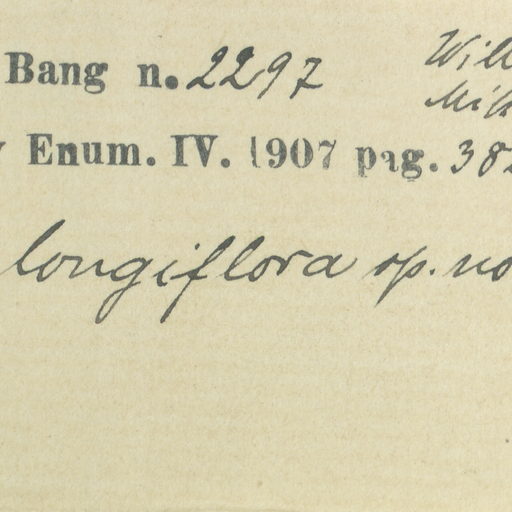 Bang n. 2297
Enum. IV. 1907 pag. 38
longiflora sp. no